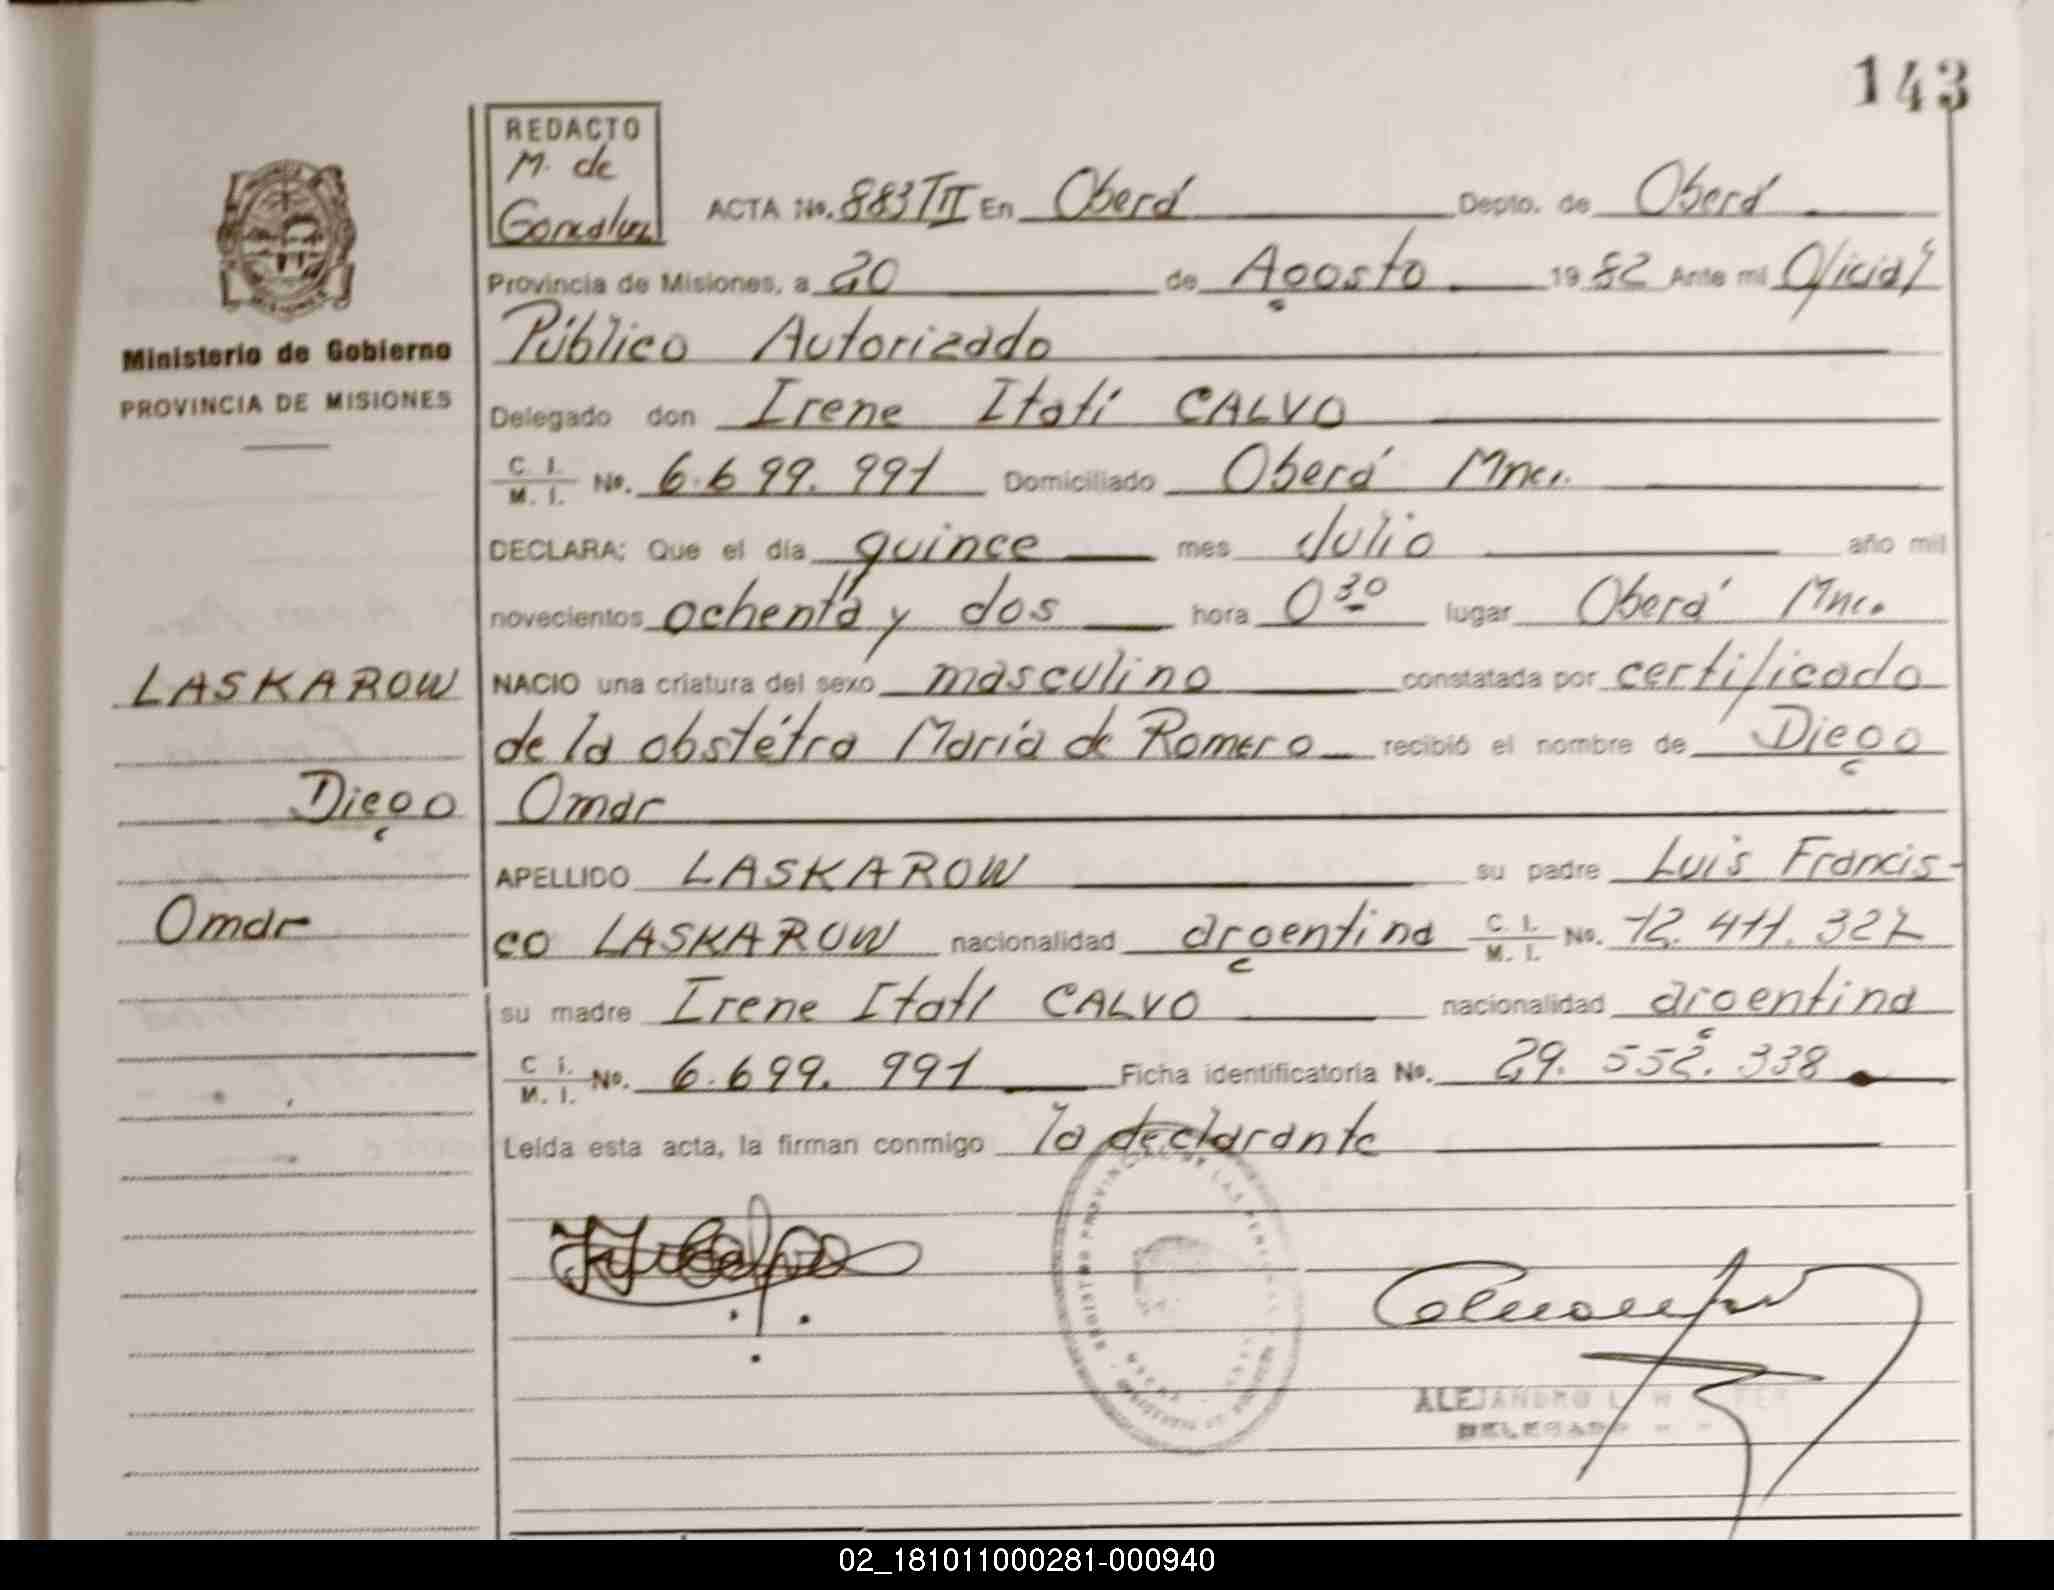 143
REDACTO
M. de
Gonzalez
ACTA No. 883TII En Oberá Depto. de Oberá
Provincia de Misiones, a 20 de Agosto 1982 Ante mi Oficial
Público Autorizado
Ministerio de Gobierno
PROVINCIA DE MISIONES
Delegado don Irene Itatí CALVO
C. I.
M. I. No. 6.699.991 Domiciliado Oberá Mnes.
DECLARA: Que el día quince mes Julio año mil
novecientos ochenta y dos hora 0 30 lugar Oberá Mnes.
LASKAROW
NACIO una criatura del sexo masculino constatada por certificado
de la obstétra María de Romero recibió el nombre de Diego
Diego
Omar
APELLIDO LASKAROW su padre Luis Francis-
Omar
co LASKAROW nacionalidad argentina C. I. M. I. No. 12.411.327
su madre Irene Itatí CALVO nacionalidad argentina
C. I.
M. I. No. 6.699.991 Ficha identificatoria No. 29.552.338
Leída esta acta, la firman conmigo la declarante
ALEJANDRO
DELEGADO
02_181011000281-000940